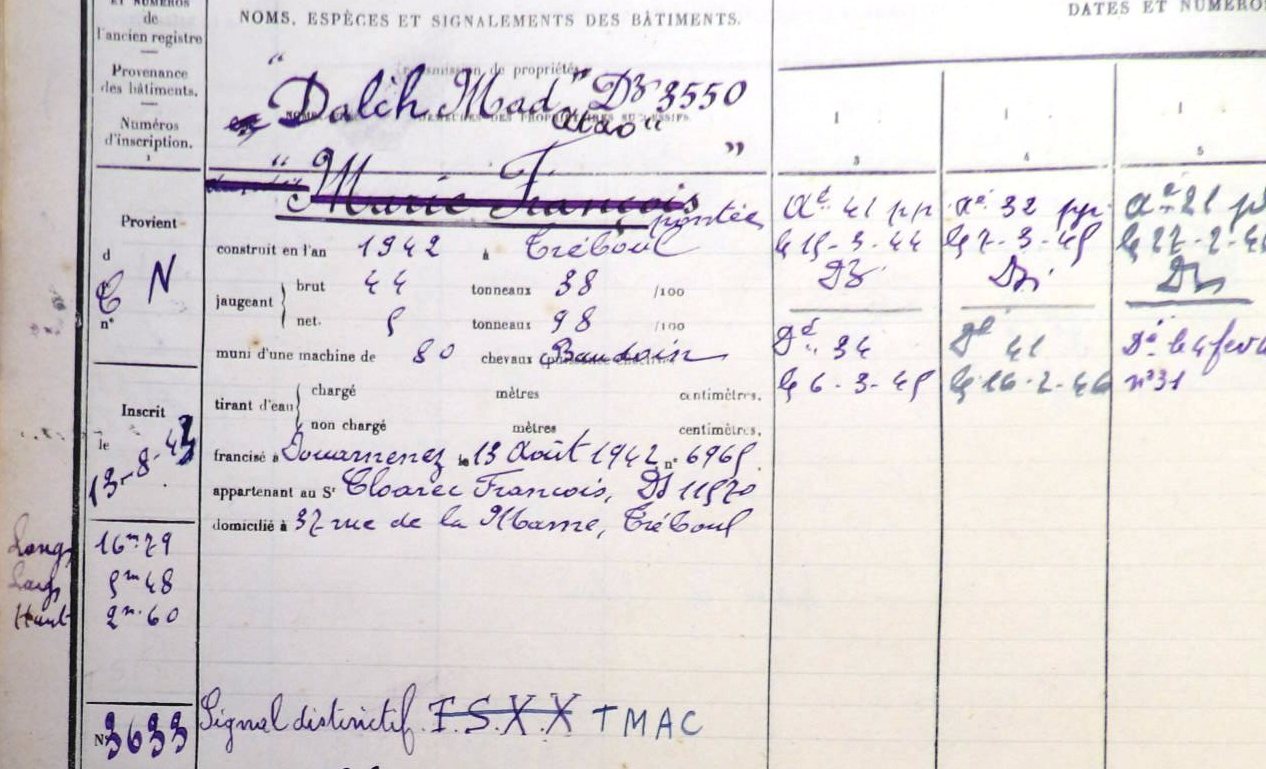 ET NUMÉROS
de
l'ancien registre
Provenance
des bâtiments.
Numéros
d'inscription.
1
NOMS, ESPÈCES ET SIGNALEMENTS DES BÂTIMENTS.
DATES ET NUMÉRO
de propriétés
"Dalc'h Mad" DZ 3550
"Marie François"
pontée
1
3
1
4
1
5
Provient
d
C N
n°
construit en l'an 1942 à Tréboul
jaugeant brut 44 tonneaux 38 /100
net. 5 tonneaux 98 /100
muni d'une machine de 80 chevaux Baudoin
tirant d'eau chargé mètres centimètres.
non chargé mètres centimètres.
francisé à Douarnenez le 13 Août 1942 n° 6965.
appartenant au Sr Cloarec François, DZ 11570
domicilié à 37 rue de la Marne, Tréboul
Inscrit
le
13-8-43
Long 16m79
Larg 5m48
Haut 2m.60
N° 3633
Signal distinctif. F.S.X.X TMAC
Ad. 41 pp
le 15-3-44
DZ
Dd. 34
le 6-3-45
Ad 32 pp.
le 7-3-45
DZ
Dd 41
le 16-2-46
Ad 21 p
le 27-2-4
DZ
Dd le 4 fev
n° 31